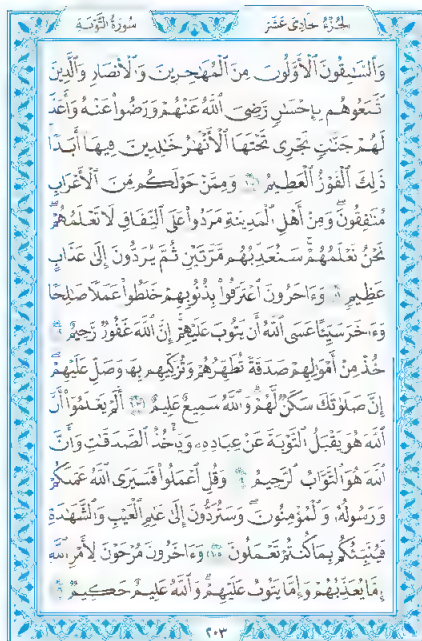 الجزء حادي عشر سورة التوبة
وَالسَّٰبِقُونَ الْأَوَّلُونَ مِنَ الْمُهَٰجِرِينَ وَالْأَنصَارِ وَالَّذِينَ
اتَّبَعُوهُم بِإِحْسَٰنٍ رَّضِيَ اللَّهُ عَنْهُمْ وَرَضُوا عَنْهُ وَأَعَدَّ
لَهُمْ جَنَّٰتٍ تَجْرِي تَحْتَهَا الْأَنْهَٰرُ خَٰلِدِينَ فِيهَا أَبَدًا
ذَٰلِكَ الْفَوْزُ الْعَظِيمُ ١٠٠ وَمِمَّنْ حَوْلَكُم مِّنَ الْأَعْرَابِ
مُنَٰفِقُونَ وَمِنْ أَهْلِ الْمَدِينَةِ مَرَدُوا عَلَى النِّفَاقِ لَا تَعْلَمُهُمْ
نَحْنُ نَعْلَمُهُمْ سَنُعَذِّبُهُم مَّرَّتَيْنِ ثُمَّ يُرَدُّونَ إِلَىٰ عَذَابٍ
عَظِيمٍ ١٠١ وَءَاخَرُونَ اعْتَرَفُوا بِذُنُوبِهِمْ خَلَطُوا عَمَلًا صَٰلِحًا
وَءَاخَرَ سَيِّئًا عَسَى اللَّهُ أَن يَتُوبَ عَلَيْهِمْ إِنَّ اللَّهَ غَفُورٌ رَّحِيمٌ ١٠٢
خُذْ مِنْ أَمْوَٰلِهِمْ صَدَقَةً تُطَهِّرُهُمْ وَتُزَكِّيهِم بِهَا وَصَلِّ عَلَيْهِمْ
إِنَّ صَلَوٰتَكَ سَكَنٌ لَّهُمْ وَاللَّهُ سَمِيعٌ عَلِيمٌ ١٠٣ أَلَمْ يَعْلَمُوا أَنَّ
اللَّهَ هُوَ يَقْبَلُ التَّوْبَةَ عَنْ عِبَادِهِ وَيَأْخُذُ الصَّدَقَٰتِ وَأَنَّ
اللَّهَ هُوَ التَّوَّابُ الرَّحِيمُ ١٠٤ وَقُلِ اعْمَلُوا فَسَيَرَى اللَّهُ عَمَلَكُمْ
وَرَسُولُهُ وَالْمُؤْمِنُونَ وَسَتُرَدُّونَ إِلَىٰ عَٰلِمِ الْغَيْبِ وَالشَّهَٰدَةِ
فَيُنَبِّئُكُم بِمَا كُنتُمْ تَعْمَلُونَ ١٠٥ وَءَاخَرُونَ مُرْجَوْنَ لِأَمْرِ اللَّهِ
إِمَّا يُعَذِّبُهُمْ وَإِمَّا يَتُوبُ عَلَيْهِمْ وَاللَّهُ عَلِيمٌ حَكِيمٌ ١٠٦
٢٠٣